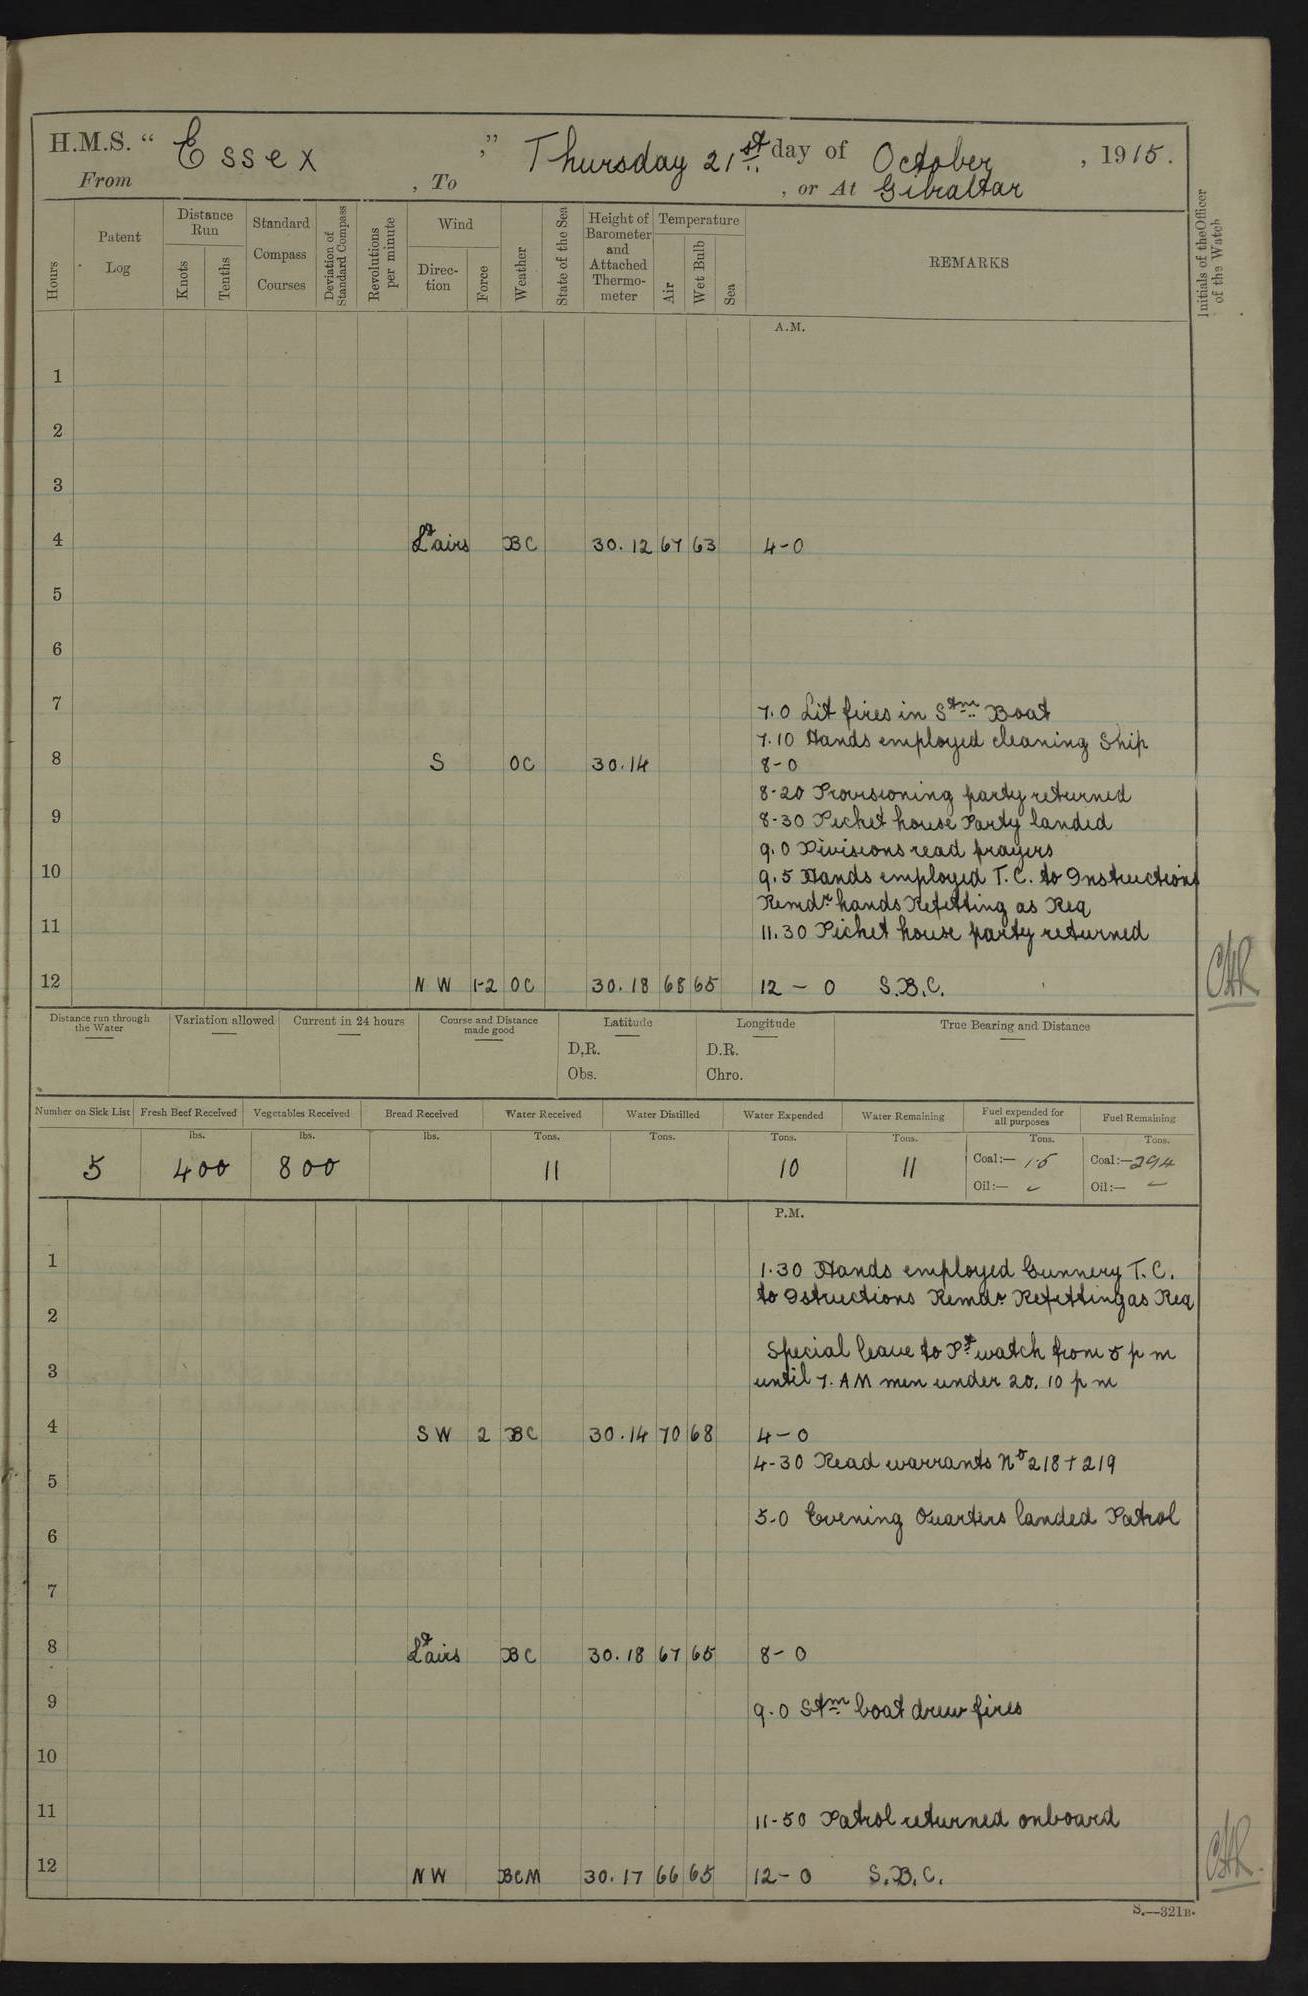 H.M.S. “ Essex ,” Thursday 21st day of October , 1915.
From , To , or At Gibraltar
Hours
Patent Log
Distance Run
Knots
Tenths
Standard Compass Courses
Deviation of Standard Compass
Revolutions per minute
Wind
Direc-tion
Force
Weather
State of the Sea
Height of Barometer and Attached Thermo-meter
Temperature
Air
Wet Bulb
Sea
REMARKS
Initials of the Officer of the Watch
A.M.
1
2
3
4 Lt airs BC 30.12 67 63 4-0
5
6
7
7.0 Lit fires in Stm Boat
7.10 Hands employed cleaning Ship
8 S OC 30.14 8-0
8-20 Provisioning party returned
9
8-30 Picket house Party landed
9.0 Divisions read prayers
10
9.5 Hands employed T.C. to Instructions
Remdr hands Refitting as Req
11
11.30 Picket house party returned
12 NW 1-2 OC 30.18 68 65 12 - 0 S.B.C.
Distance run through the Water
Variation allowed
Current in 24 hours
Course and Distance made good
Latitude
D.R.
Obs.
Longitude
D.R.
Chro.
True Bearing and Distance
Number on Sick List
Fresh Beef Received
Vegetables Received
Bread Received
Water Received
Water Distilled
Water Expended
Water Remaining
Fuel expended for all purposes
Fuel Remaining
lbs. lbs. lbs. Tons. Tons. Tons. Tons. Tons. Tons.
5 400 800 11 10 11 Coal:— 15 Coal:—294
Oil:— – Oil:— –
P.M.
1
1.30 Hands employed Gunnery T.C.
to Istructions Remdr Refitting as Req
2
Special leave to Pt watch from 5 p m
3
until 7. AM men under 20. 10 p m
4 SW 2 BC 30.14 70 68 4-0
4-30 Read warrants No 218 + 219
5
5-0 Evening Quarters landed Patrol
6
7
8 Lt airs BC 30.18 67 65 8-0
9
9.0 Stm boat drew fires
10
11
11-50 Patrol returned onboard
12 NW BCM 30.17 66 65 12-0 S.B.C.
S.—321B.